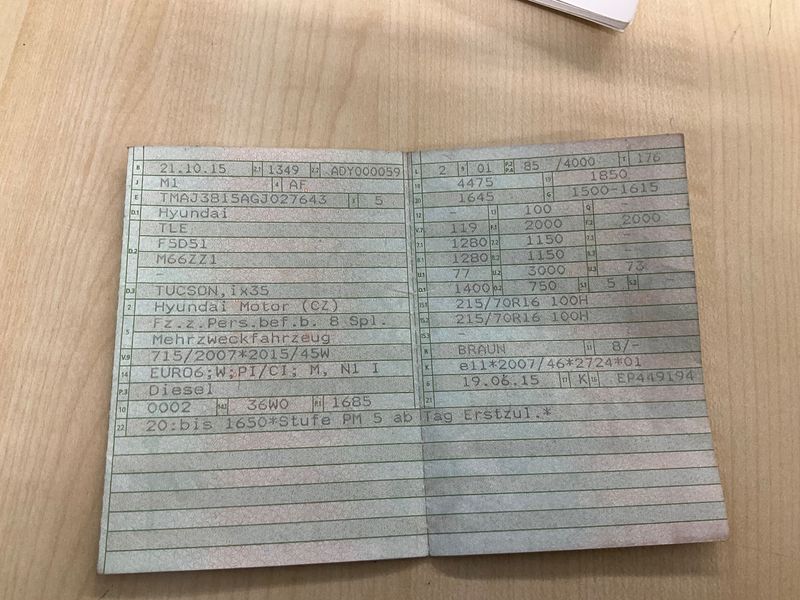 B 21.10.15 2.1 1349 2.2 ADY000059
J M1 4 AF
E TMAJ3815AGJ027643 3 5
D.1 Hyundai
TLE
D.2 F5D51
M66ZZ1
-
D.3 TUCSON,ix35
2 Hyundai Motor (CZ)
5 Fz.z.Pers.bef.b. 8 Spl.
Mehrzweckfahrzeug
V.9 715/2007*2015/45W
14 EURO6;W;PI/CI; M, N1 I
P.3 Diesel
10 0002 14.1 36W0 P.1 1685
22 20:bis 1650*Stufe PM 5 ab Tag Erstzul.*
L 2 9 01 P.2 P.4 85 /4000 T 176
18 4475 19 1850
20 1645 G 1500-1615
12 - 13 100 Q -
V.7 119 F.1 2000 F.2 2000
7.1 1280 7.2 1150 7.3 -
8.1 1280 8.2 1150 -
U.1 77 U.2 3000 U.3 73
O.1 1400 O.2 750 S.1 5 S.2 -
15.1 215/70R16 100H
15.2 215/70R16 100H
-
R BRAUN 11 8/-
K e11*2007/46*2724*01
6 19.06.15 17 K 16 EP449194
21